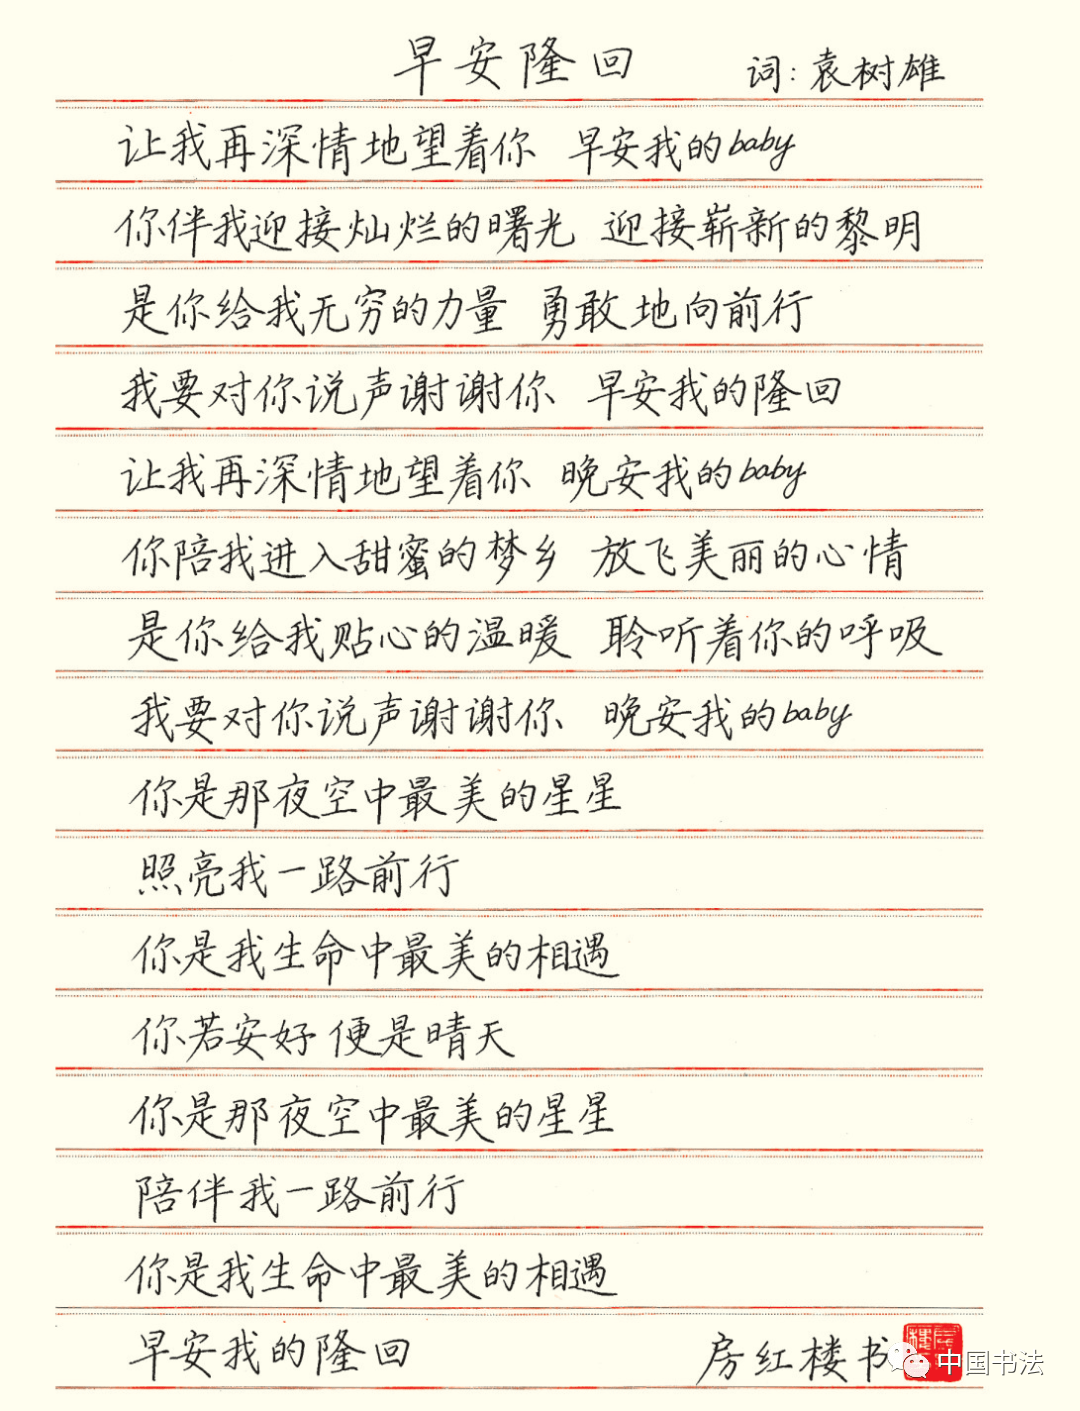 早安隆回 词:袁树雄
让我再深情地望着你 早安我的baby
你伴我迎接灿烂的曙光 迎接崭新的黎明
是你给我无穷的力量 勇敢地向前行
我要对你说声谢谢你 早安我的隆回
让我再深情地望着你 晚安我的baby
你陪我进入甜蜜的梦乡 放飞美丽的心情
是你给我贴心的温暖 聆听着你的呼吸
我要对你说声谢谢你 晚安我的baby
你是那夜空中最美的星星
照亮我一路前行
你是我生命中最美的相遇
你若安好便是晴天
你是那夜空中最美的星星
陪伴我一路前行
你是我生命中最美的相遇
早安我的隆回 房红楼书
中国书法